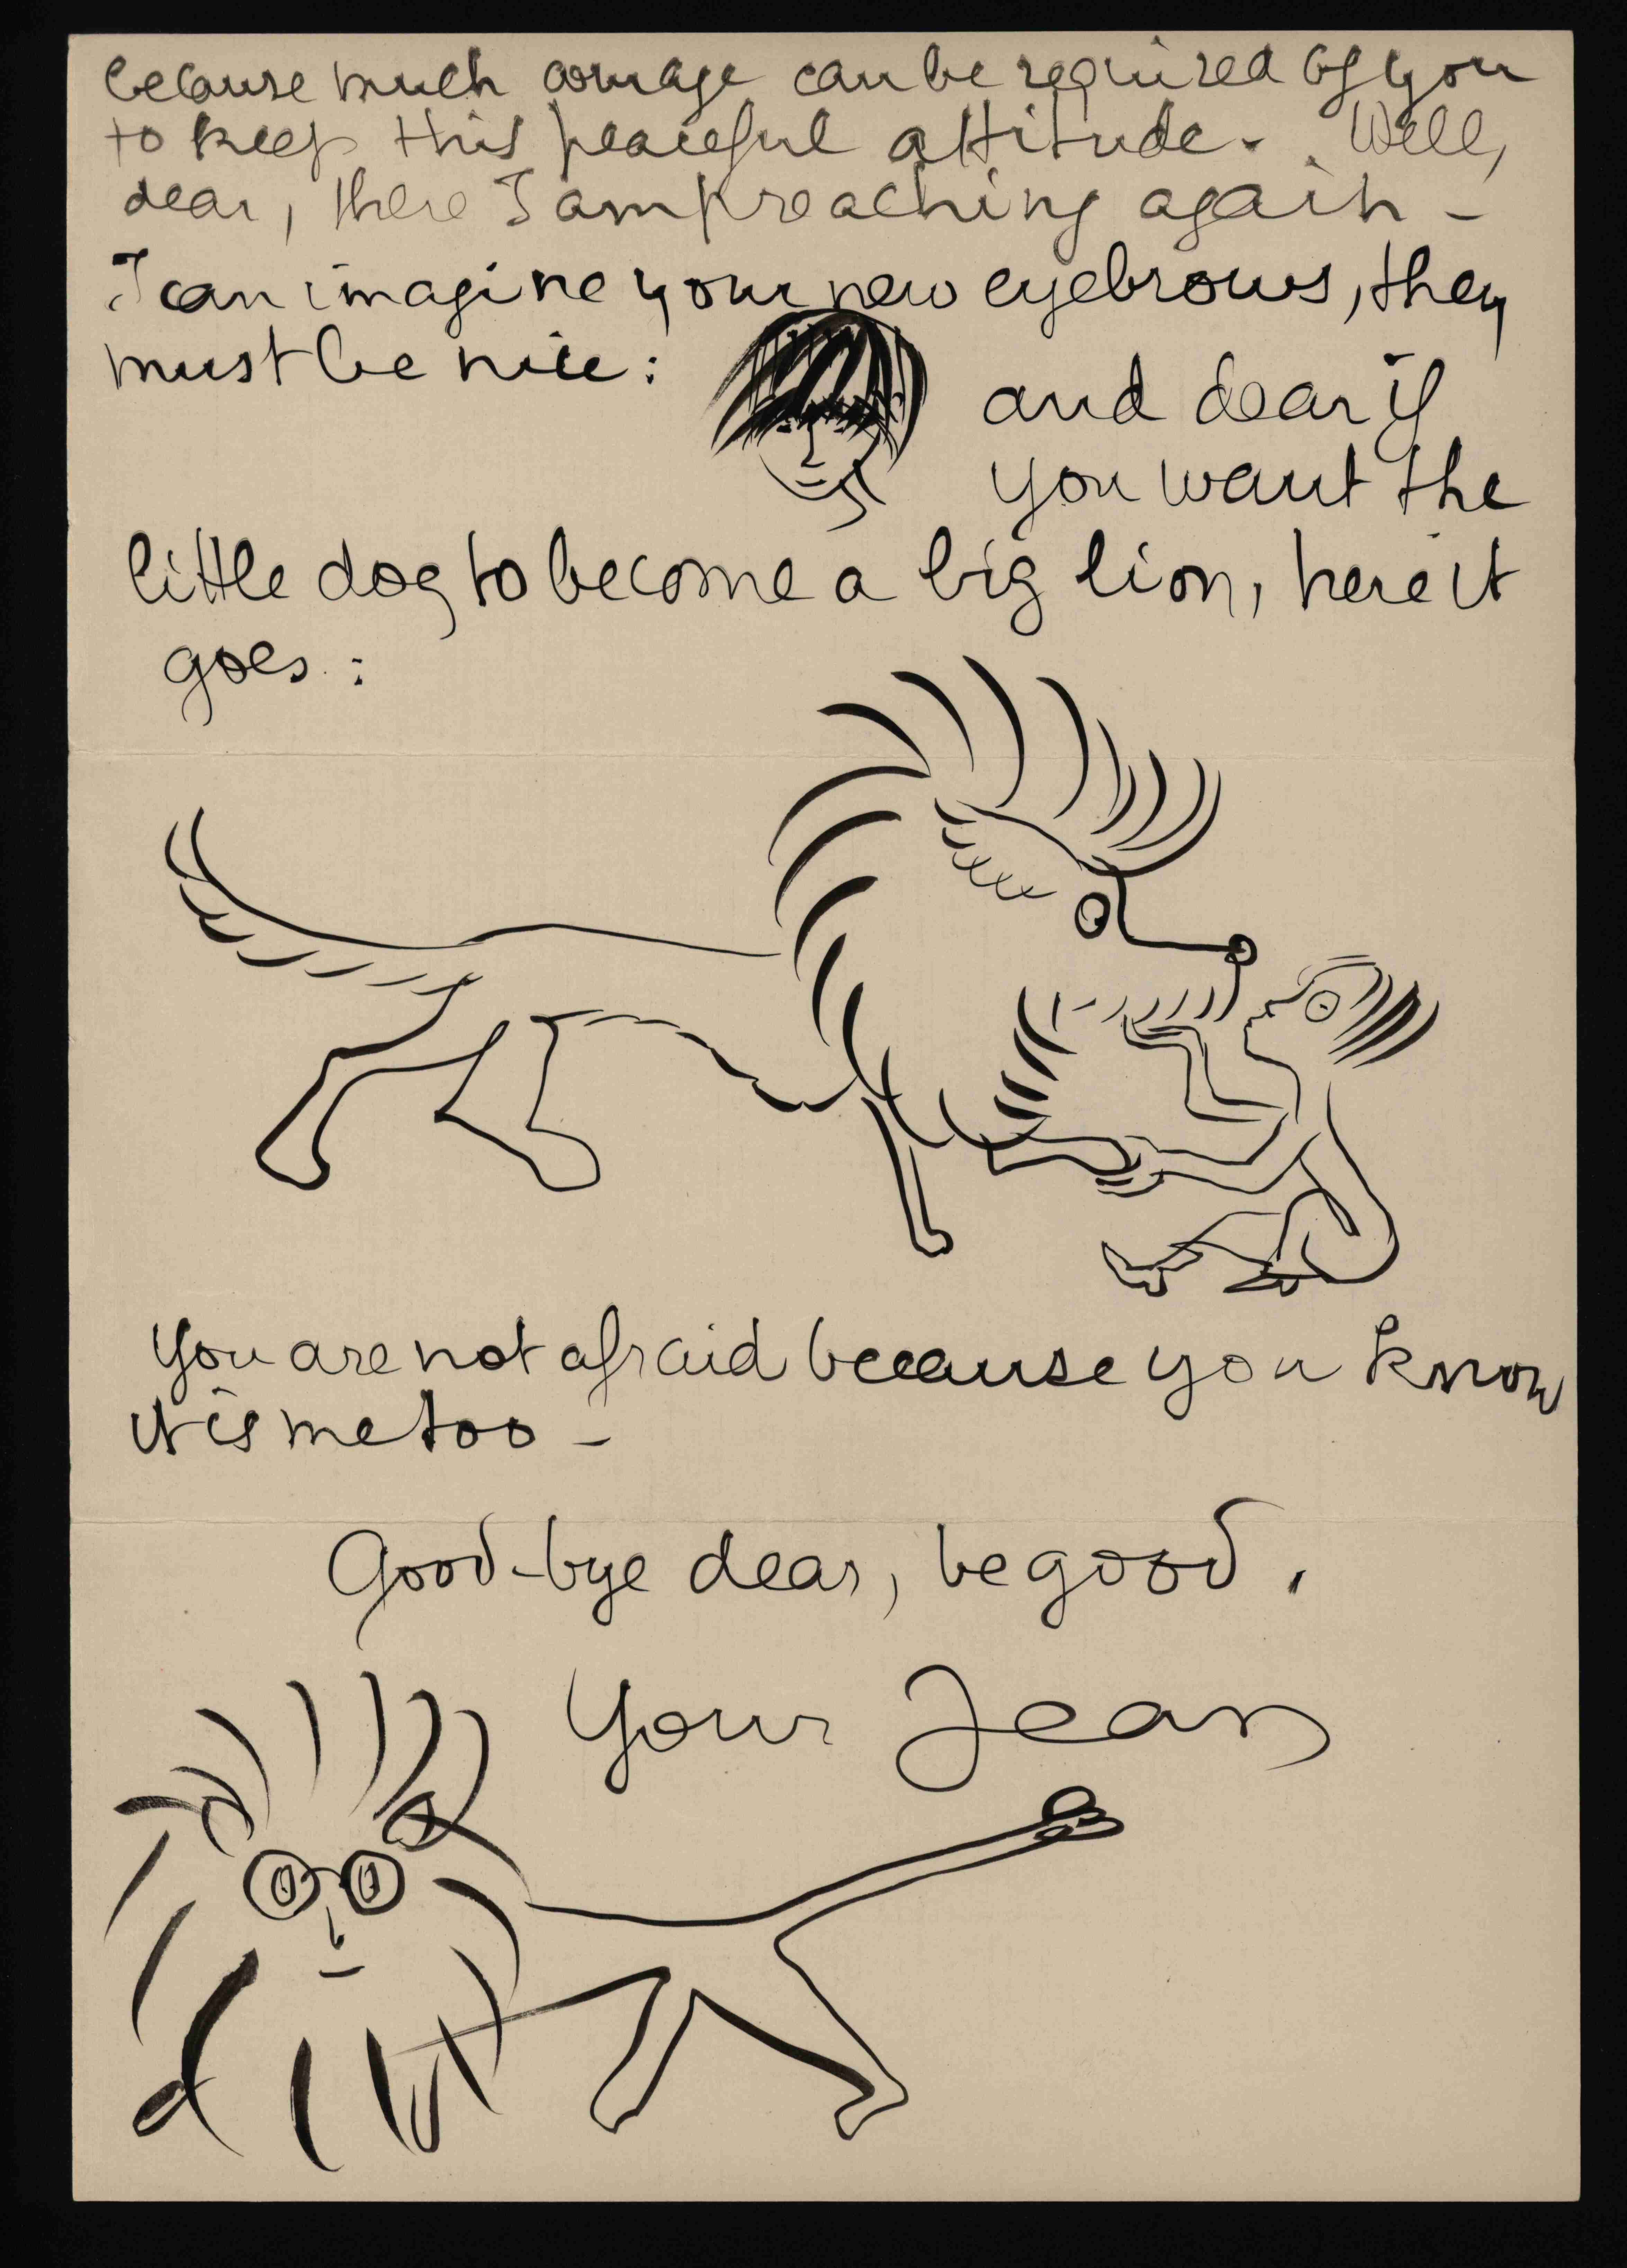 because much courage can be required of you
to keep this peaceful attitude - . Well,
dear, there I am preaching again -
I can imagine your new eyebrows, they
must be nice :
and dear if
you want the
little dog to become a big lion, here it
goes :
You are not afraid because you know
it is me too -
Good-bye dear, be good .
Your Jean